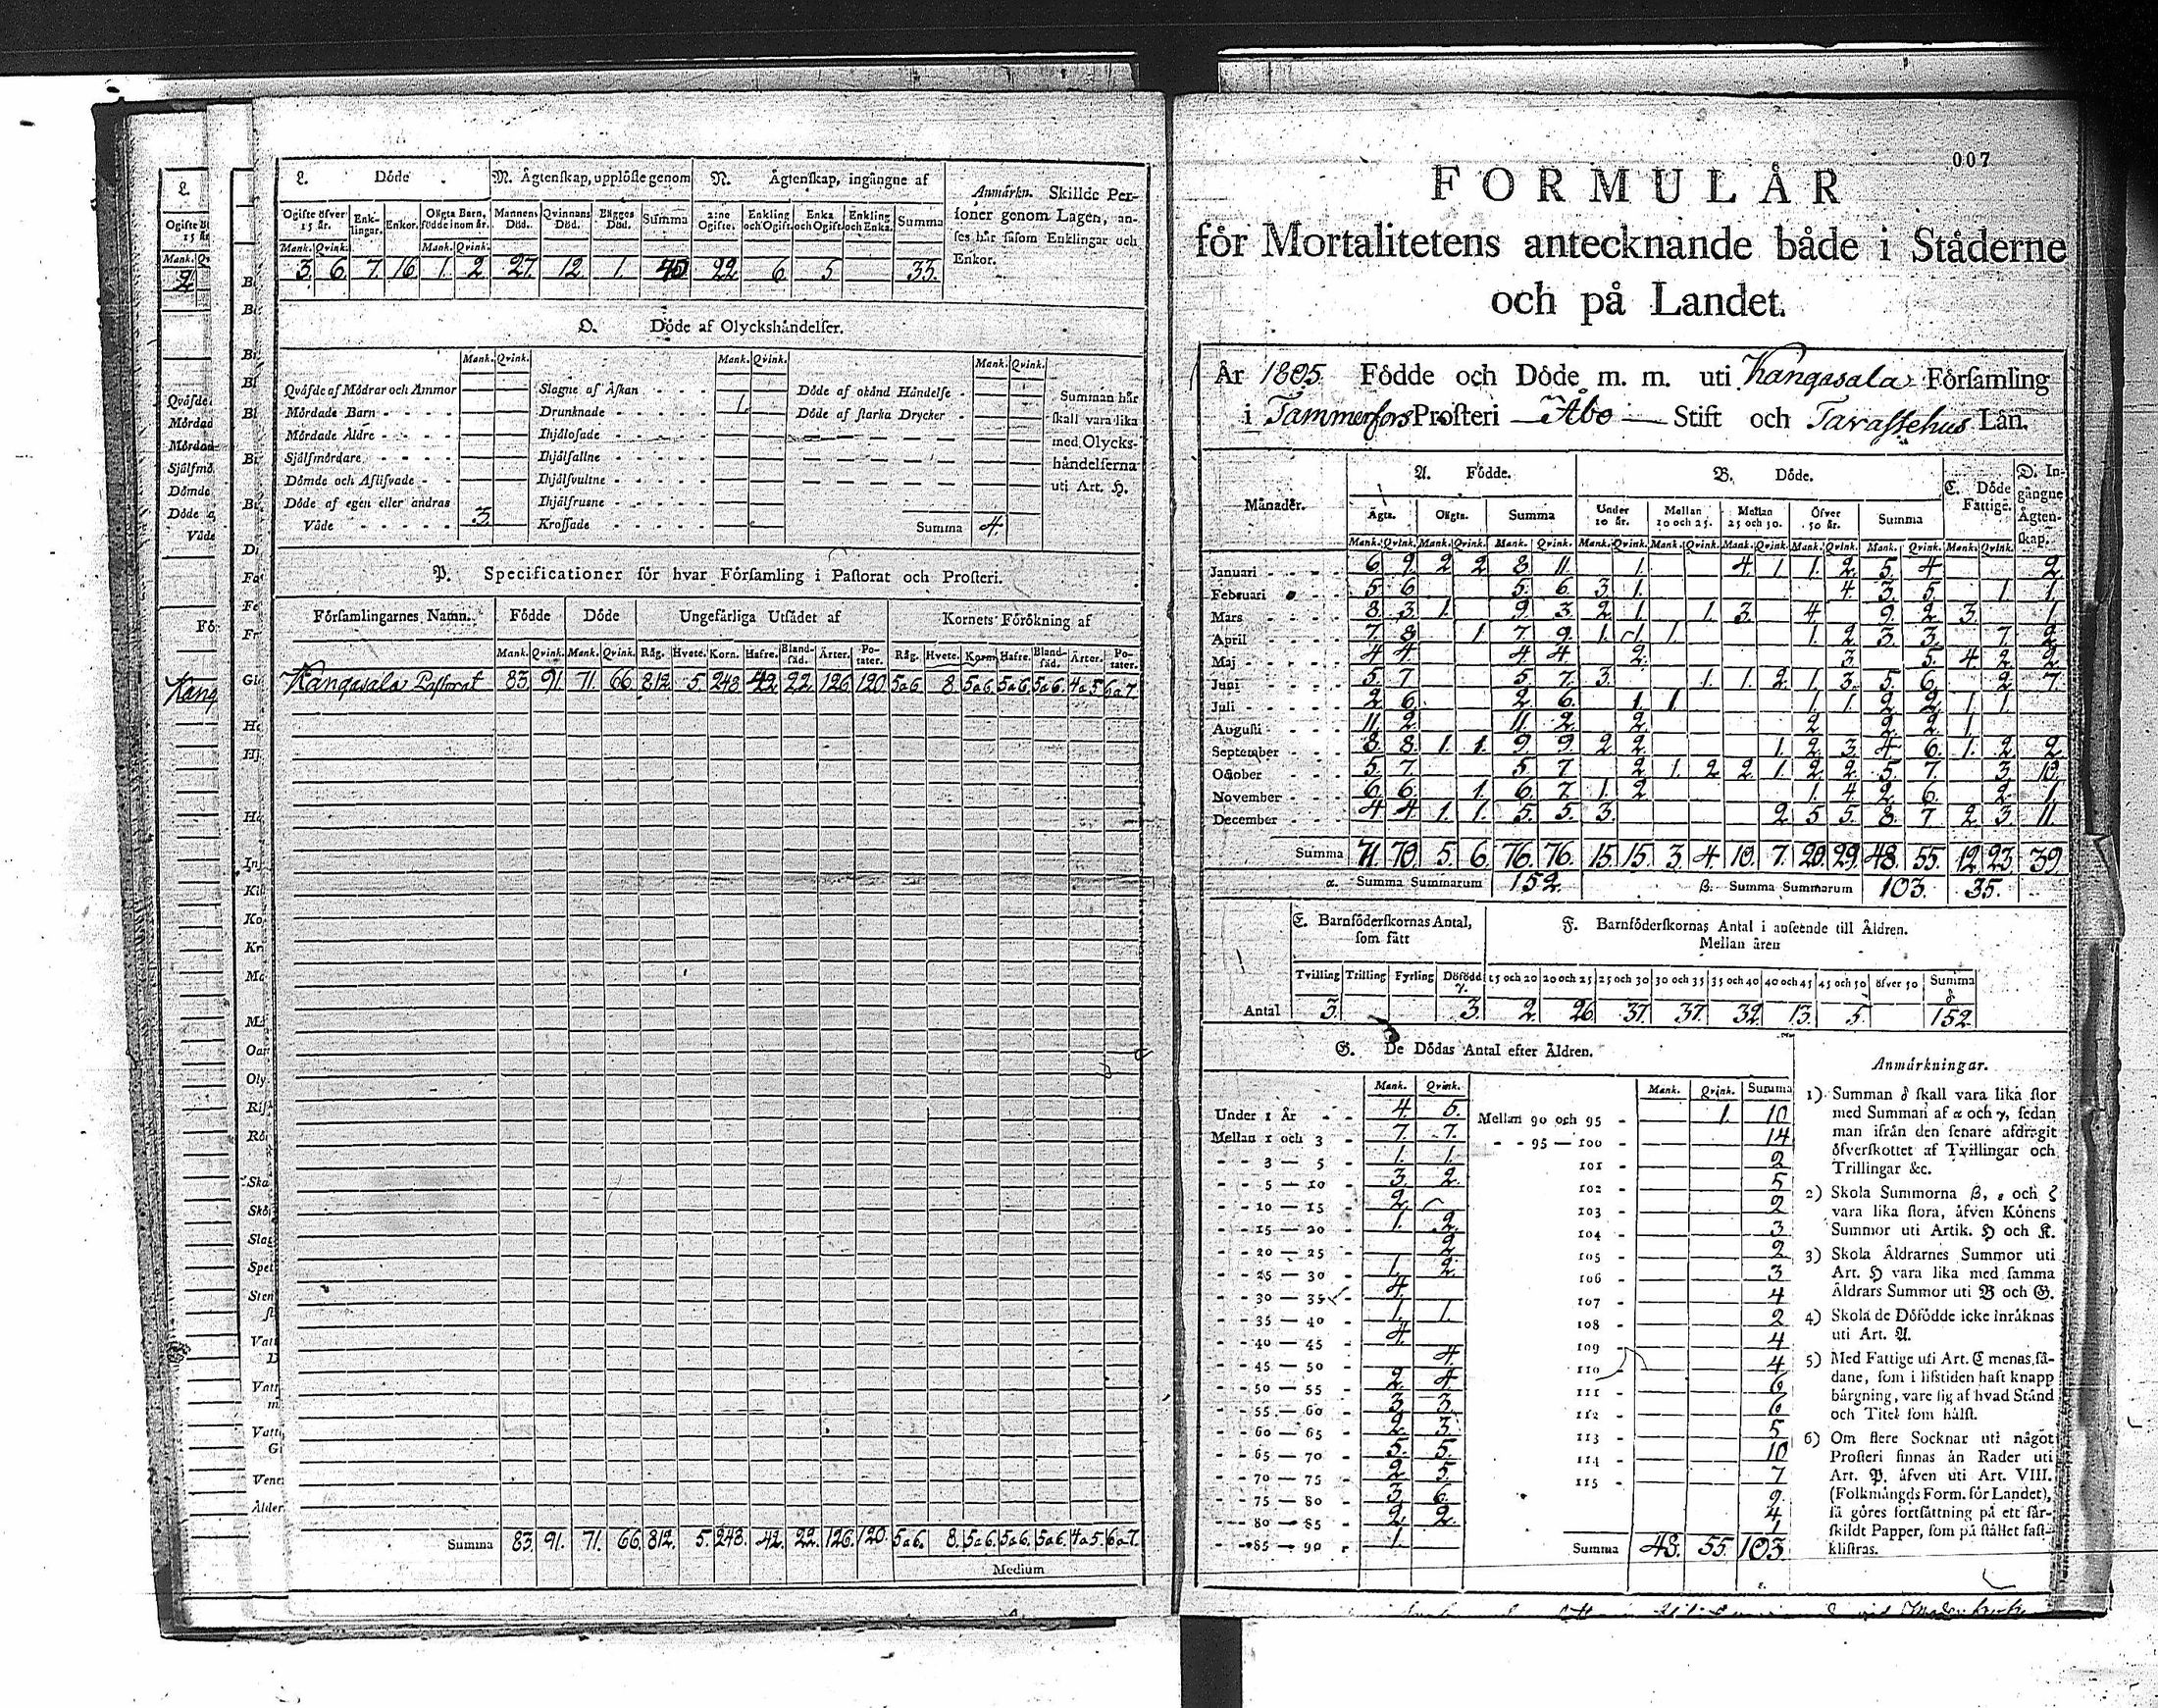 L. Döde
M. Ägtenskap, upplöste genom
N. Ägtenskap, ingångne af
Anmärkn. Skillde Personer
soner genom Lagen, an-
ses här såsom Enklingar och
Enkor.
Ogifte öfver 15 år. Enklingar. Enkor. Oägta Barn, födde inom år. Mannens Död. Qvinnans Död. Bägges Död. Summa 2:ne Ogifte. Enkling och Ogift. Enka och Ogift. Enkling och Enka. Summa
Mank. Qvink. Mank. Qvink.
3. 6. 7. 16. 1. 2. 27. 12. 1. 40 22 6. 5. 33.
O. Döde af Olyckshändelser.
Mank. Qvink. Mank. Qvink. Mank. Qvink.
Qväfde af Mödrar och Ammor Slagne af Åskan Döde af okänd Händelse Summan här
Mördade Barn Drunknade 1. Döde af starka Drycker skall vara lika
Mördade Äldre Ihjälosade med Olycks-
Självmördare Ihjälfallne händelserna
Dömde och Aflifvade Ihjälsvultne uti Art. H.
Döde af egen eller andras Ihjälfrusne
Våde 3. Krossade Summa 4.
P. Specificationer för hvar Församling i Pastorat och Prosteri.
Församlingarnes Namn. Födde Döde Ungefärliga Utsädet af Kornets Förökning af
Mank. Qvink. Mank. Qvink. Råg. Hvete. Korn. Hafre. Blandsäd. Ärter. Potater. Råg. Hvete. Korn. Hafre. Blandsäd. Ärter. Potater.
Kangasala Pastorat 83. 91. 71. 66 812. 5. 243. 42. 22. 126. 120. 5 a 6. 8. 5 a 6. 5 a 6. 5 a 6. 4 a 5. 6 a 7.
Summa 83. 91. 71. 66. 812. 5. 243. 42. 22. 126. 120. 5 a 6. 8. 5 a 6. 5 a 6. 5 a 6. 4 a 5. 6 a 7.
Medium
007
FORMULÅR
för Mortalitetens antecknande både i Städerne
och på Landet.
År 1805 Födde och Döde m. m. uti Kangasala Församling
i Tammerfors Prosteri Åbo Stift och Tavastehus Län.
Månader. A. Födde. B. Döde. C. Döde Fattige. D. Ingångne Ägtenskap.
Ägta. Oägta. Summa Under 10 år. Mellan 10 och 25. Mellan 25 och 50. Öfver 50 år. Summa
Mank. Qvink. Mank. Qvink. Mank. Qvink. Mank. Qvink. Mank. Qvink. Mank. Qvink. Mank. Qvink. Mank. Qvink. Mank. Qvink.
Januari 6 9. 2 2 8 11. 1. 4. 1. 1. 2. 5. 4 2
Februari 5 6 5. 6. 3 1. 4. 3. 5. 1 1.
Mars 8 3 1. 9 3. 2 1. 1. 3. 4. 9. 2 3. 1.
April 7. 8 1. 7 9. 1. 1. 1 1. 2 3 3. 7. 2
Maj 4 4 4. 4. 2. 3. 5. 4 2 2.
Juni 5 7 5 7. 3. 1. 1. 2. 1. 3. 5. 6. 2 7.
Juli 2 6. 2 6. 1. 1 1. 1. 2 2. 1. 1.
Augusti 11 2. 11. 2 2. 2 2. 2. 1.
September 8. 8. 1. 1. 9 9. 2 2. 1. 2. 3. 4. 6. 1. 2. 2
October 5. 7 5 7 2. 1. 2 2. 1. 2. 2. 5. 7. 3. 10.
November 6 6. 1. 6. 7. 1. 2 1. 4. 2. 6. 2. 1.
December 4 4. 1. 1. 5. 5. 3. 2 5 5. 8. 7 2. 3. 11.
Summa 71. 70. 5. 6. 76. 76. 15. 15. 3. 4. 10. 7. 20. 29. 48. 55. 12. 23. 39.
α. Summa Summarum 152. β. Summa Summarum 103. 35.
E. Barnföderskornas Antal, som fått
F. Barnföderskornas Antal i anseende till Åldren.
Mellan åren
Tvilling Trilling Fyrling Dödfödd γ. 15 och 20 20 och 25 25 och 30 30 och 35 35 och 40 40 och 45 45 och 50 öfver 50 Summa δ
Antal 3. 3. 2. 26 37. 37. 32. 13. 5. 152.
G. De Dödas Antal efter Åldren.
Mank. Qvink. Mank. Qvink. Summa
Under 1 År 4. 5. Mellan 90 och 95 1. 10
Mellan 1 och 3 7. 7. 95 — 100 14
3 — 5 1. 1. 101 2
5 — 10 3. 2. 102 5
10 — 15 2. 103 2
15 — 20 1. 2. 104 3
20 — 25 2 105 2
25 — 30 1. 2. 106 3
30 — 35 4. 107 4
35 — 40 1. 1. 108 2
40 — 45 4. 109 4
45 — 50 4. 110 4
50 — 55 2. 4. 111 6
55 — 60 3. 3. 112 6
60 — 65 2. 3. 113 5
65 — 70 5. 5. 114 10
70 — 75 2. 5. 115 7
75 — 80 3 6. 9.
80 — 85 2. 2. 4
85 — 90 1. 1
Summa 48. 55. 103
Anmärkningar.
1) Summan δ skall vara lika stor
med Summan af α och γ, sedan
man ifrån den senare afdragit
öfverskottet af Tvillingar och
Trillingar &c.
2) Skola Summorna β, ε och ζ
vara lika stora, äfven Könens
Summor uti Artik. H och K.
3) Skola Åldrarnes Summor uti
Art. H vara lika med samma
Åldrars Summor uti B och G.
4) Skola de Dödfödde icke inräknas
uti Art. A.
5) Med Fattige uti Art. C menas så-
dane, som i lifstiden haft knapp
bärgning, vare sig af hvad Stånd
och Titel som hälst.
6) Om flere Socknar uti något
Prosteri finnas än Rader uti
Art. P. äfven uti Art. VIII.
(Folkmängds Form. för Landet),
så göres fortsättning på ett sär-
skildt Papper, som på stället fast-
klistras.